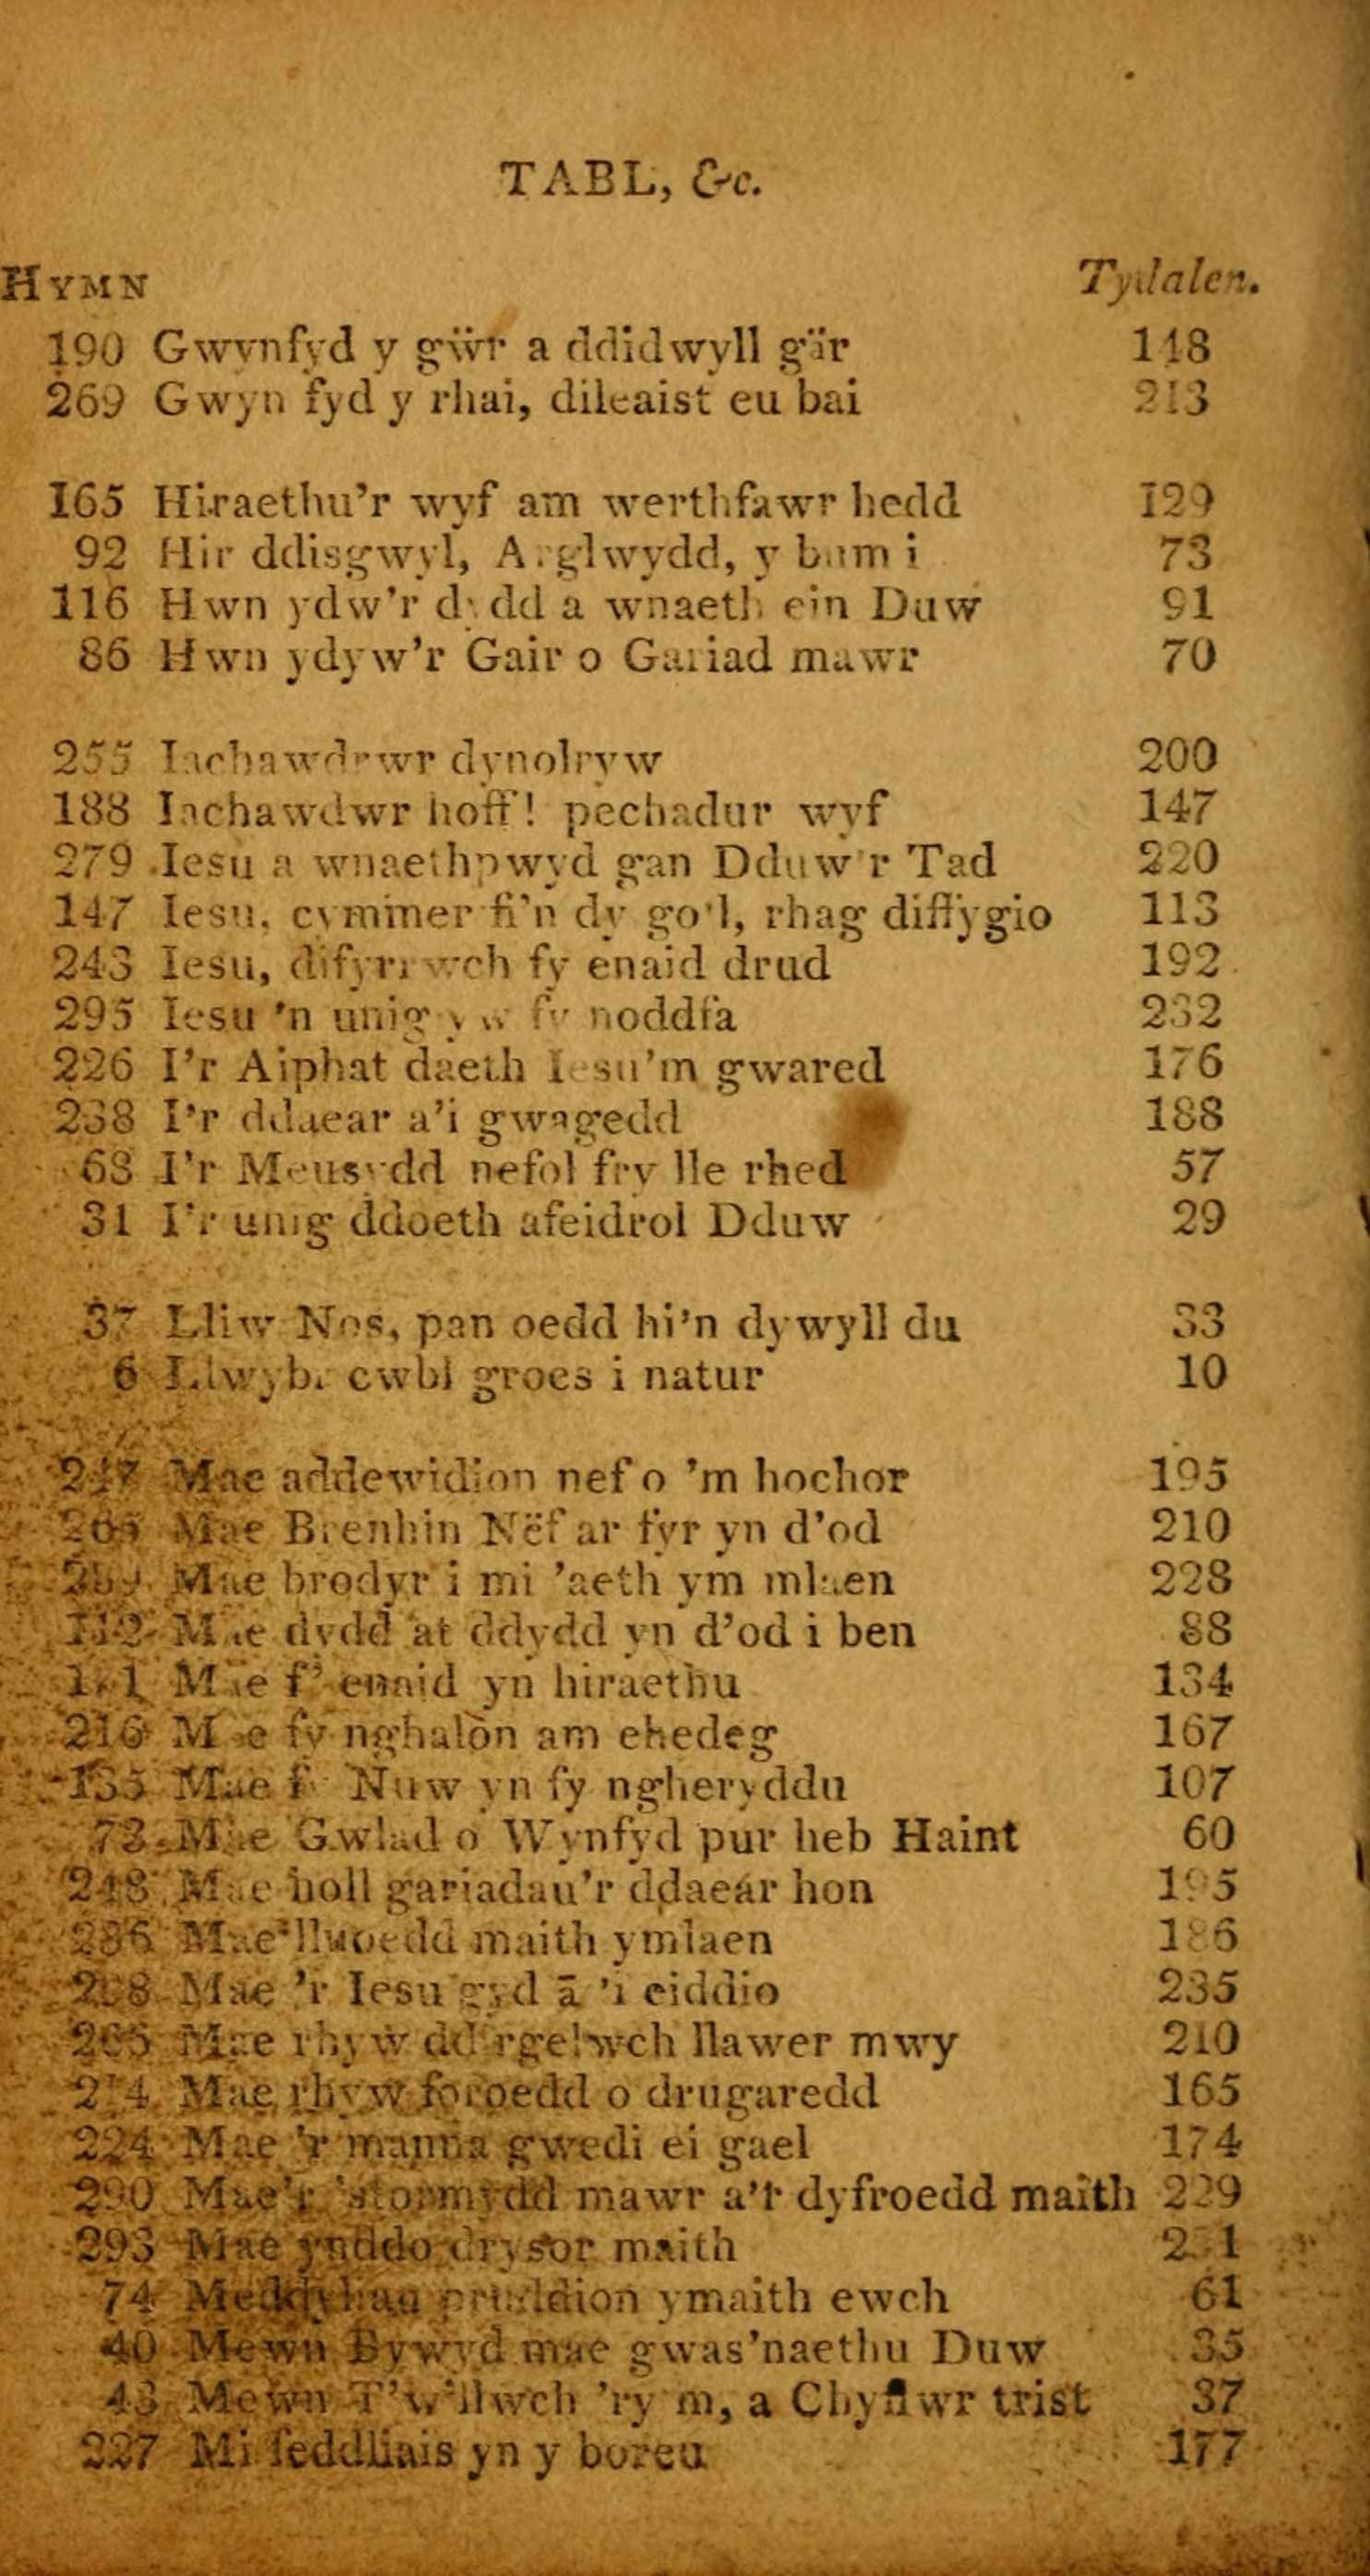 TABL, &c.
HYMN Tydalen.
190 Gwynfyd y gẅr a ddidwyll gär 148
269 Gwyn fyd y rhai, dileaist eu bai 213
165 Hiraethu'r wyf am werthfawr hedd 129
92 Hir ddisgwyl, Arglwydd, y bum i 73
116 Hwn ydw'r dydd a wnaeth ein Duw 91
86 Hwn ydyw'r Gair o Gariad mawr 70
255 Iachawdwr dynolryw 200
188 Iachawdwr hoff! pechadur wyf 147
279 Iesu a wnaethpwyd gan Dduw'r Tad 220
147 Iesu, cymmer fi'n dy go'l, rhag diffygio 113
243 Iesu, difyrrwch fy enaid drud 192
295 Iesu 'n unig yw fy noddfa 232
226 I'r Aiphat daeth Iesu'm gwared 176
238 I'r ddaear a'i gwagedd 188
68 I'r Meusydd nefol fry lle rhed 57
31 I'r unig ddoeth afeidrol Dduw 29
37 Lliw Nos, pan oedd hi'n dywyll du 33
6 Llwybr cwbl groes i natur 10
247 Mae addewidion nef o 'm hochor 195
Mae Brenhin Nëf ar fyr yn d'od 210
Mae brodyr i mi 'aeth ym mlaen 228
112 Mae dydd at ddydd yn d'od i ben 88
Mae f' enaid yn hiraethu 134
216 Mae fy nghalon am ehedeg 167
135 Mae fy Nuw yn fy ngheryddu 107
72 Mae Gwlad o Wynfyd pur heb Haint 60
248 Mae holl gariadau'r ddaear hon 195
236 Mae lluoedd maith ymlaen 186
Mae 'r Iesu gyd ā 'i eiddio 235
265 Mae rhyw ddirgelwch llawer mwy 210
214 Mae rhyw foroedd o drugaredd 165
224 Mae 'r manna gwedi ei gael 174
290 Mae'r 'stormydd mawr a'r dyfroedd maith 229
293 Mae ynddo drysor maith 231
74 Meddyliau pruddion ymaith ewch 61
40 Mewn Bywyd mae gwas'naethu Duw 35
43 Mewn T'w'llwch 'ry m, a Chyflwr trist 37
227 Mi feddliais yn y boreu 177